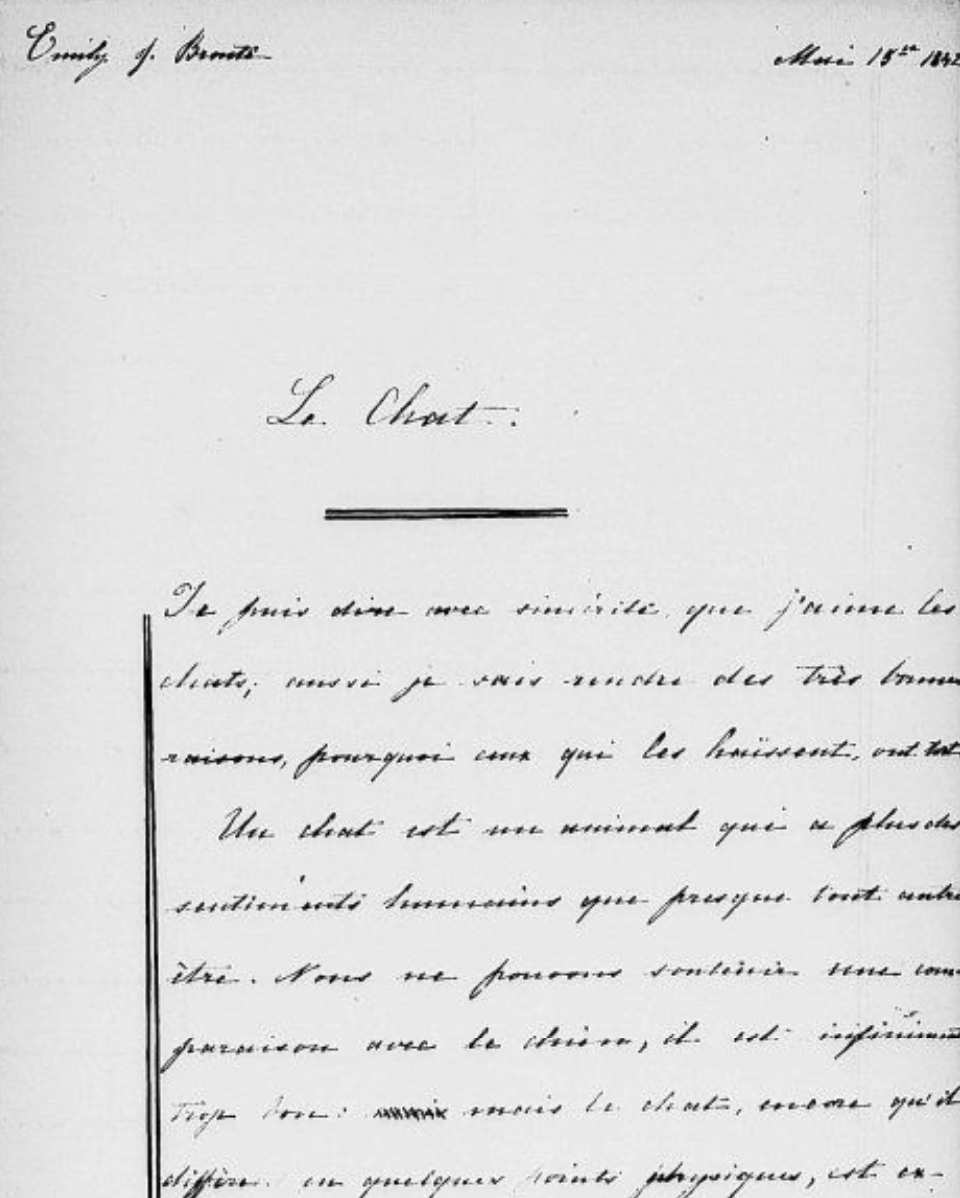 Emily J. Brontë Mai 15me 1842
Le Chat.
Je puis dire avec sincérité, que j'aime les
chats; aussi je sais rendre des très bonnes
raisons, pourquoi ceux qui les haïssent, ont tort
Un chat est un animal qui a plus des
sentiments humains que presque tout autre
être. Nous ne pouvons soutenir une com-
paraison avec le chien, il est infiniment
trop bon: mais le chat, encore qu'il
diffère en quelques points physiques, est ex-